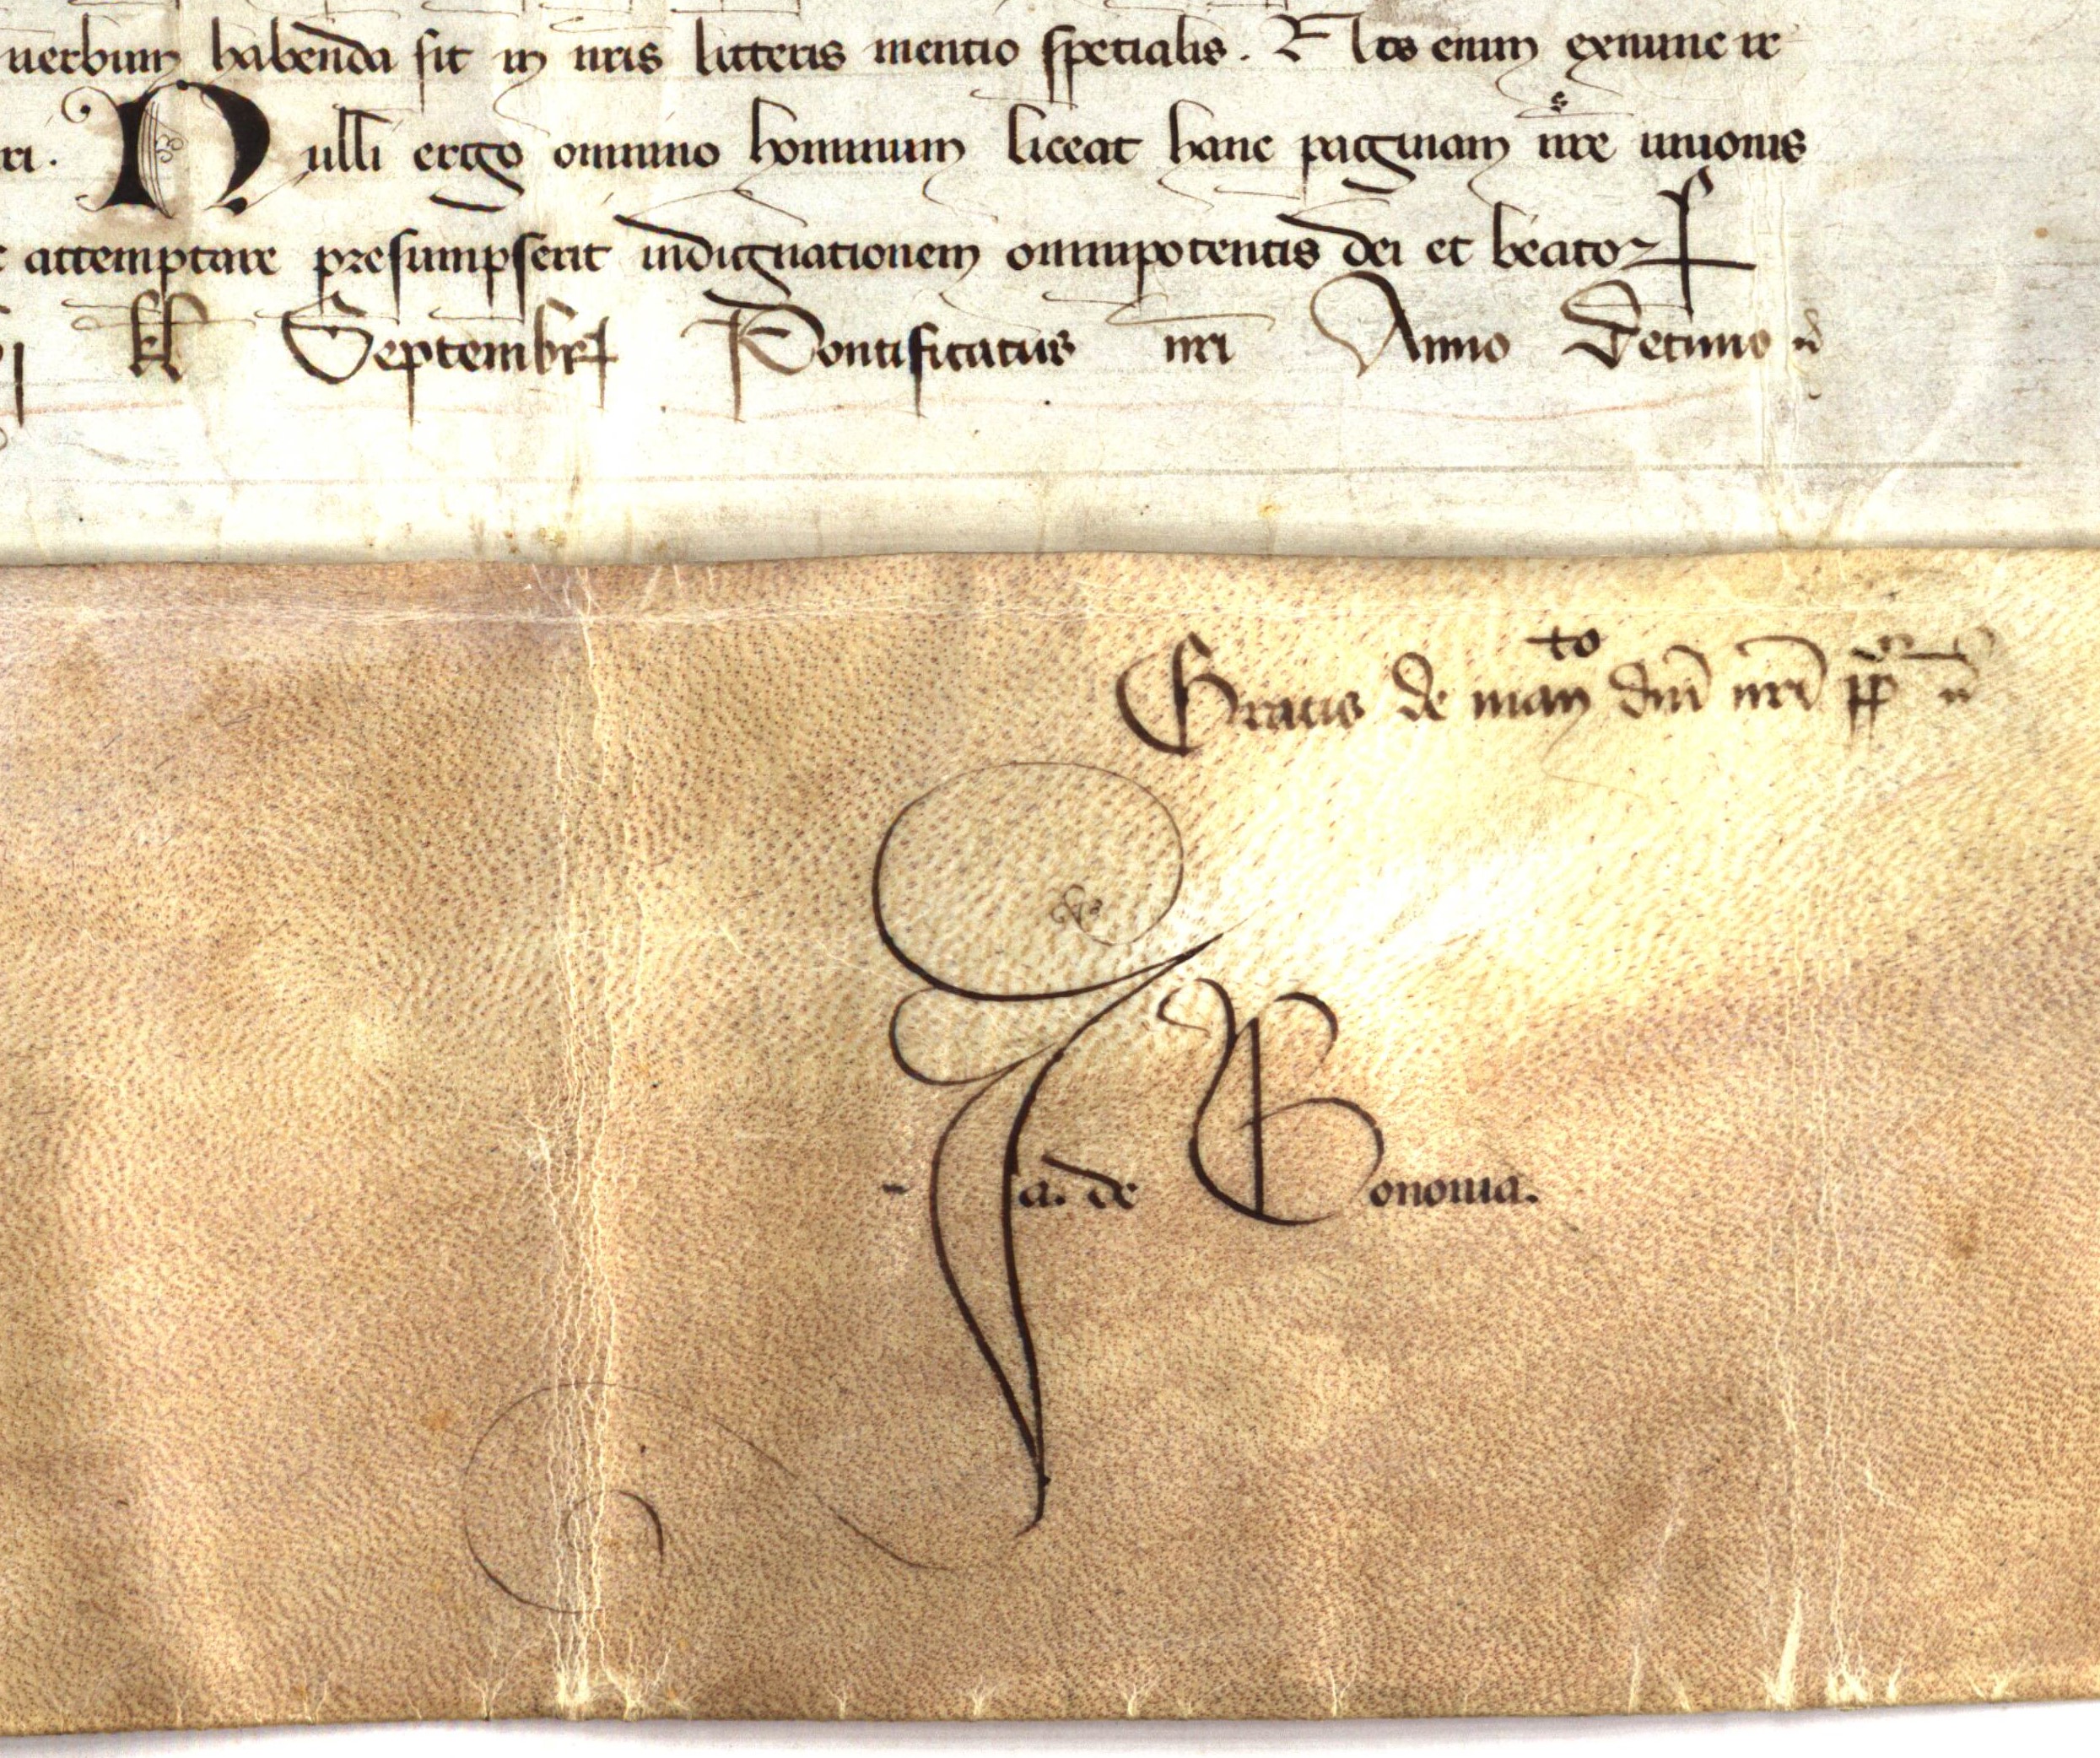 uerbum habenda sit in nris litteris mentio spetialis. Nos enim exnunc ir
ri. Nulli ergo omnino hominum liceat hanc paginam nre unionis
attemptare presumpserit indignationem omnipotentis dei et beatoꝝ
kl Septembrꝭ Pontificatus nri Anno Decimo
Gratis de man to dni nri pp
Ja. de Bononia.